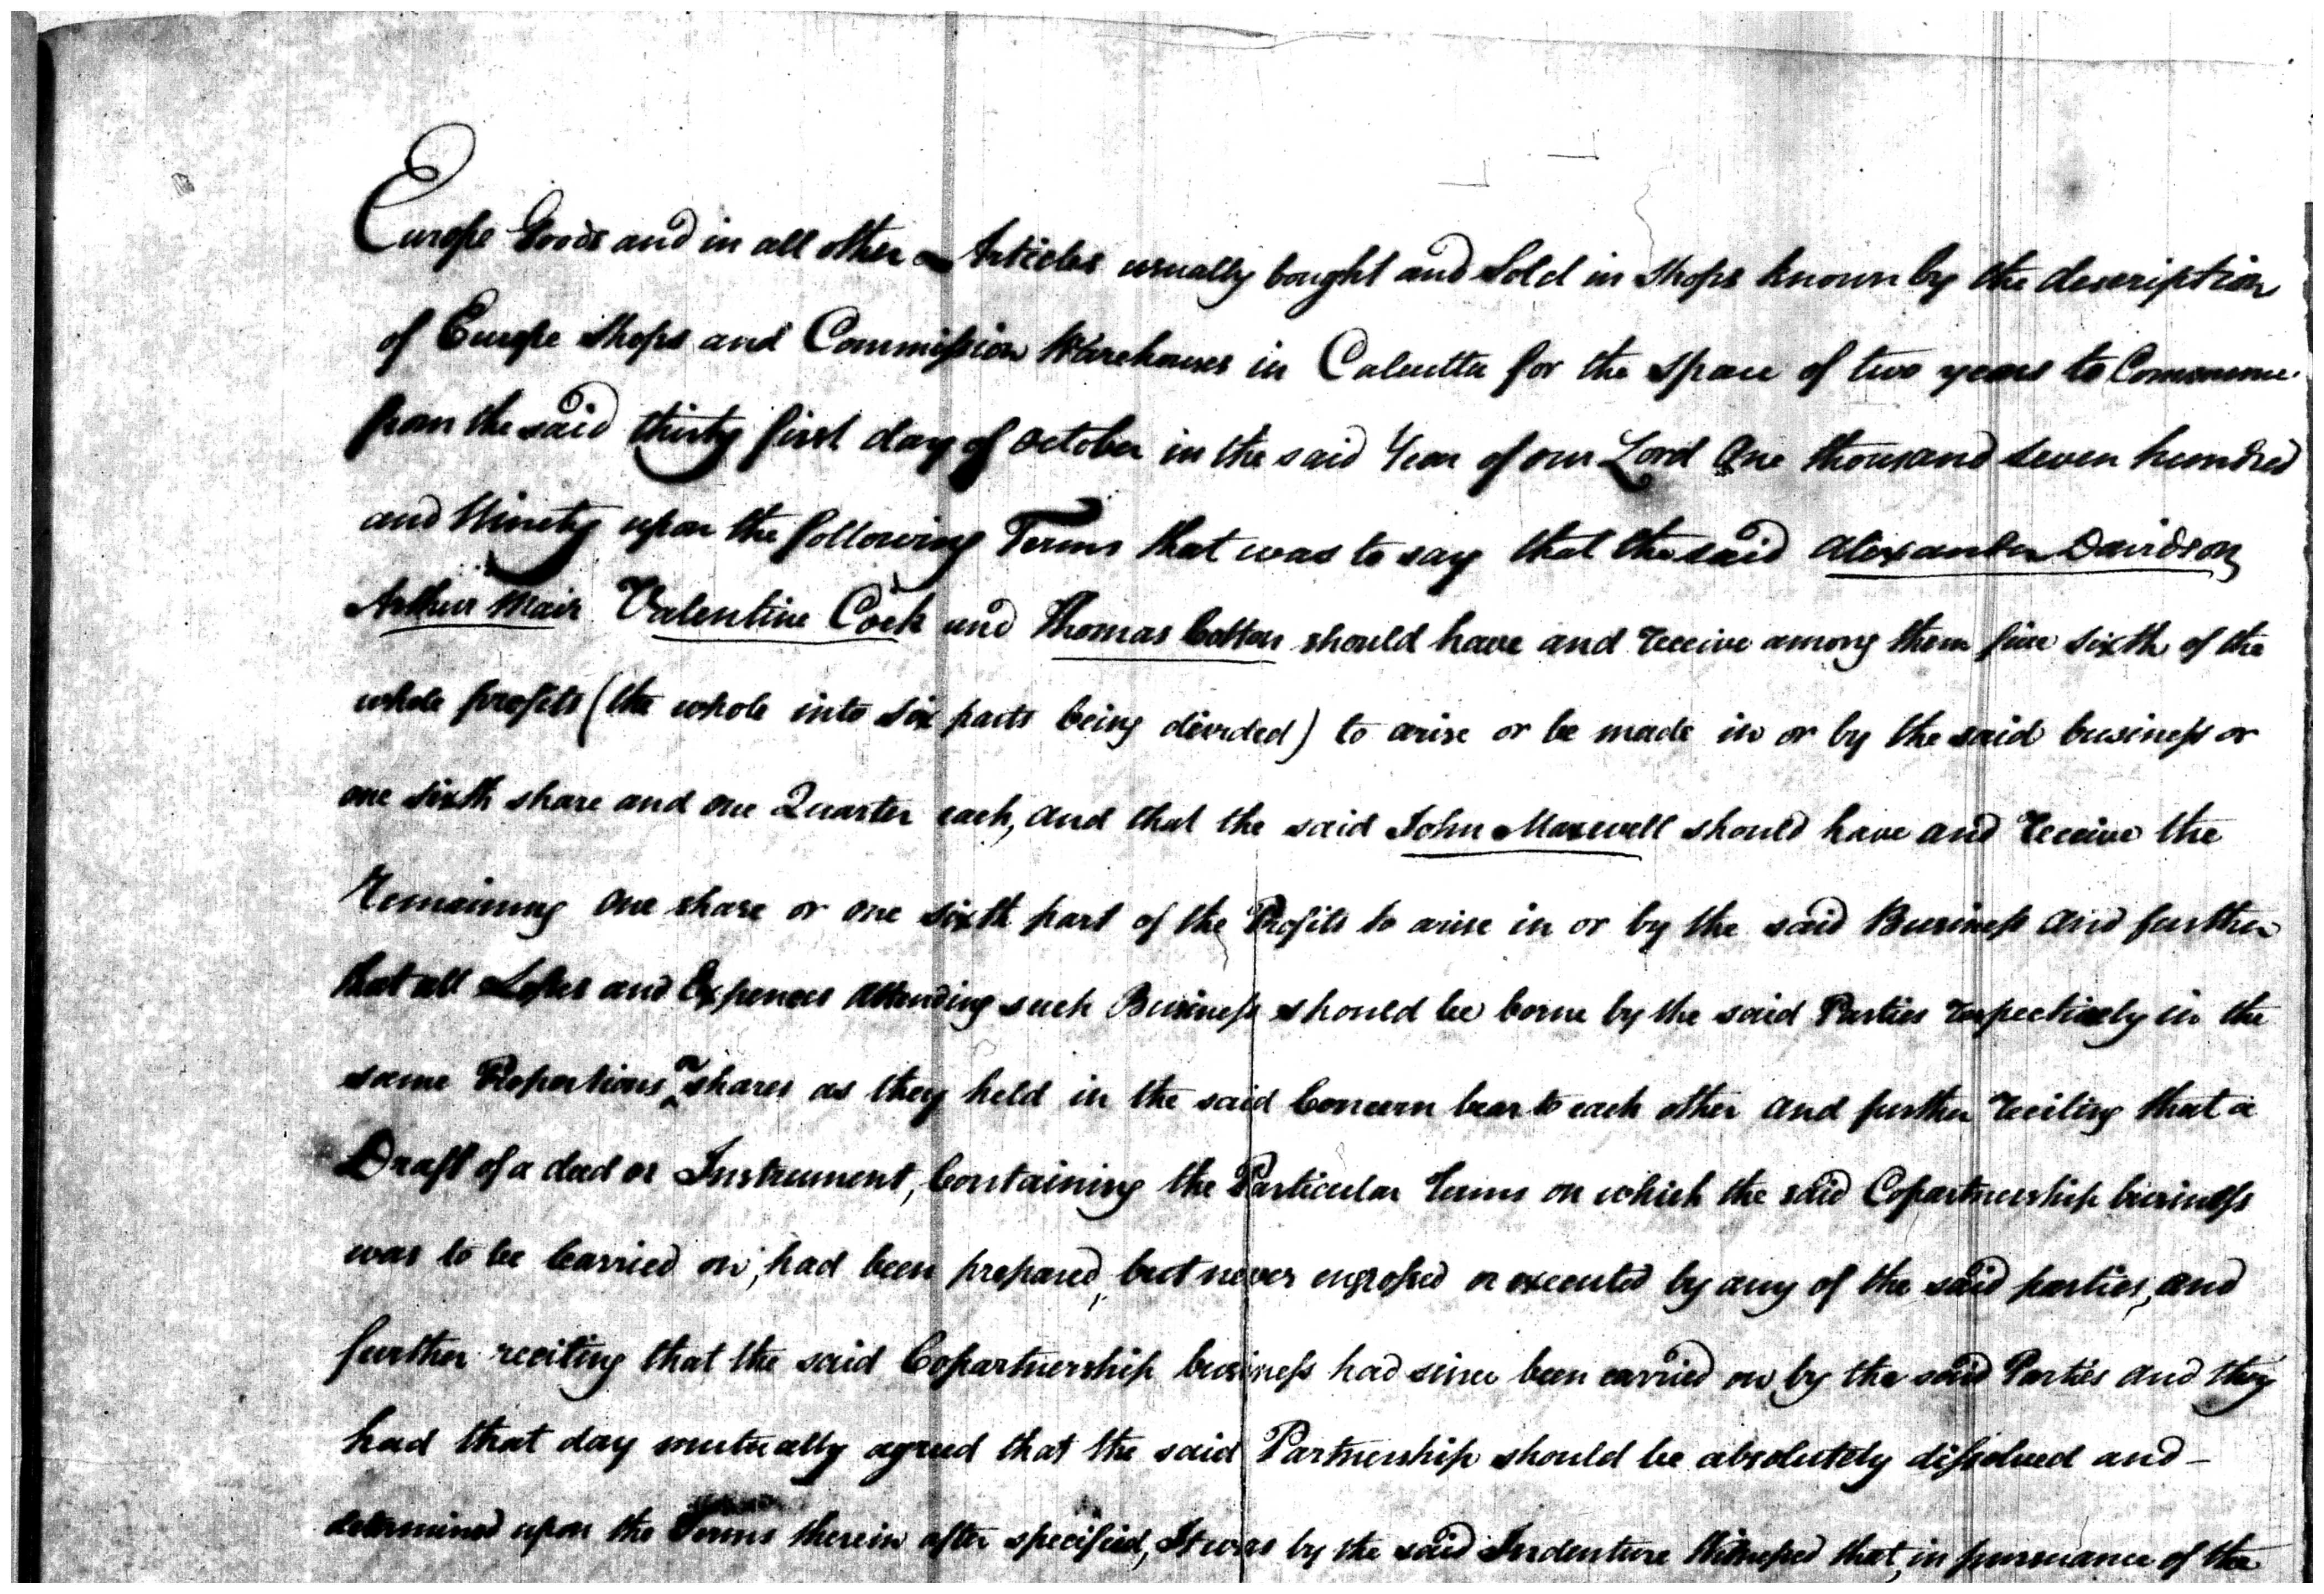 Europe Goods and in all other Articles usually bought and Sold in Shops known by the description
of Europe Shops and Commission Warehouses in Calcutta for the space of two years to Commence
from the said thirty first day of October in the said Year of our Lord One thousand seven hundred
and Ninety upon the following Terms that was to say that the said Alexander Davidson
Arthur Mair Valentine Cock and Thomas Cotton should have and receive among them five sixth of the
whole profits (the whole into six parts being divided) to arise or be made in or by the said business or
one sixth share and one Quarter each, and that the said John Maxwell should have and receive the
Remaining one share or one sixth part of the Profits to arise in or by the said Business and further
that all Losses and Expences attending such Business should be borne by the said Parties respectively in the
same Proportions shares as they held in the said Concern bear to each other and further reciting that a
Draft of a deed or Instrument, Containing the Particular terms on which the said Copartnership business
was to be Carried on, had been prepared, but never engrossed or executed by any of the said parties, and
further reciting that the said Copartnership business had since been carried on by the said Parties and they
had that day mutually agreed that the said Partnership should be absolutely dissolved and -
determined upon the Terms therein after specified, It was by the said Indenture Witnessed that, in pursuance of the